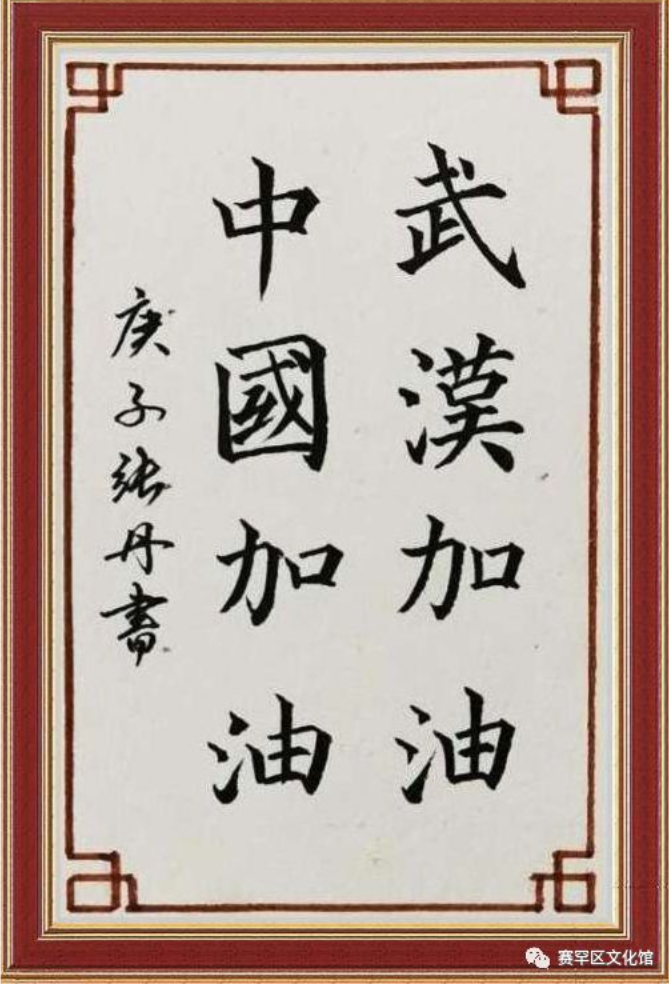 武漢加油
中國加油
庚子張丹書
赛罕区文化馆